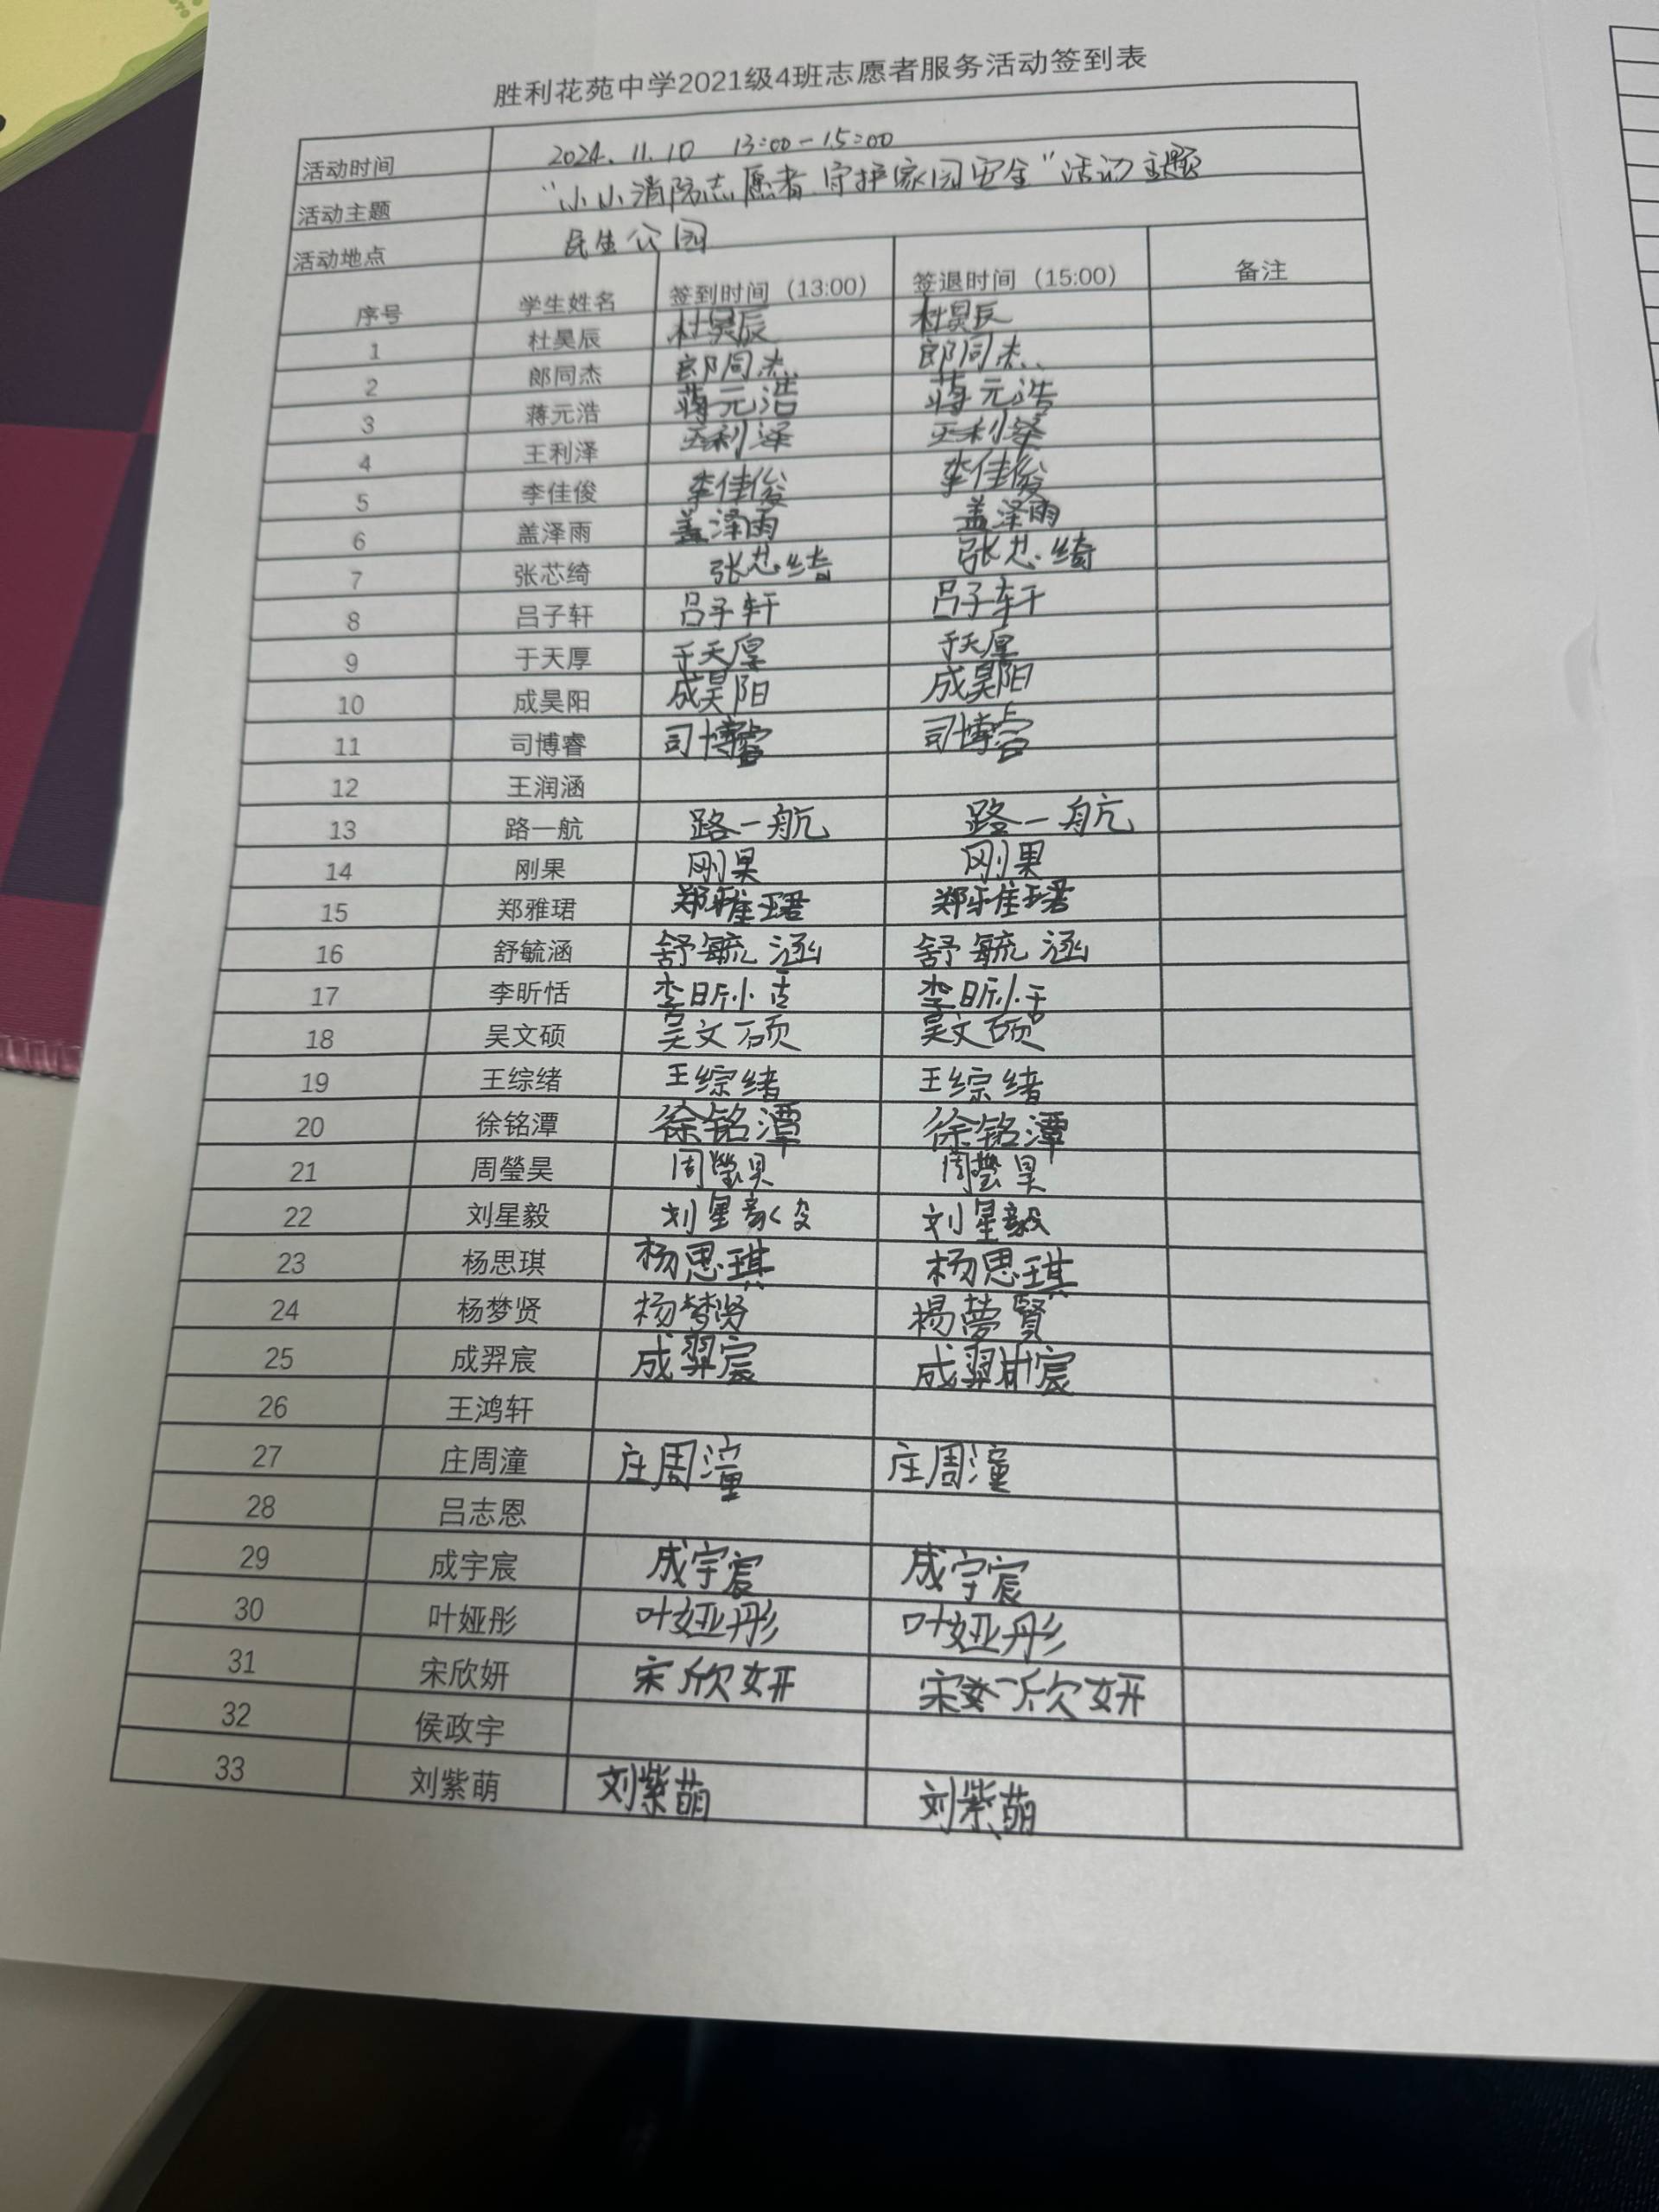 胜利花苑中学2021级4班志愿者服务活动签到表
活动时间 2024.11.10 13:00-15:00
活动主题 "小小消防志愿者 守护家园安全"活动主题
活动地点 民生公园
序号 学生姓名 签到时间（13:00） 签退时间（15:00） 备注
1 杜昊辰 杜昊辰 杜昊辰
2 郎同杰 郎同杰 郎同杰
3 蒋元浩 蒋元浩 蒋元浩
4 王利泽 王利泽 王利泽
5 李佳俊 李佳俊 李佳俊
6 盖泽雨 盖泽雨 盖泽雨
7 张芯绮 张芯绮 张芯绮
8 吕子轩 吕子轩 吕子轩
9 于天厚 于天厚 于天厚
10 成昊阳 成昊阳 成昊阳
11 司博睿 司博睿 司博睿
12 王润涵
13 路一航 路一航 路一航
14 刚果 刚果 刚果
15 郑雅珺 郑雅珺 郑雅珺
16 舒毓涵 舒毓涵 舒毓涵
17 李昕恬 李昕恬 李昕恬
18 吴文硕 吴文硕 吴文硕
19 王综绪 王综绪 王综绪
20 徐铭潭 徐铭潭 徐铭潭
21 周瑩昊 周瑩昊 周瑩昊
22 刘星毅 刘星毅 刘星毅
23 杨思琪 杨思琪 杨思琪
24 杨梦贤 杨梦贤 楊夢賢
25 成羿宸 成羿宸 成羿宸
26 王鸿轩
27 庄周潼 庄周潼 庄周潼
28 吕志恩
29 成宇宸 成宇宸 成宇宸
30 叶娅彤 叶娅彤 叶娅彤
31 宋欣妍 宋欣妍 宋欣妍
32 侯政宇
33 刘紫萌 刘紫萌 刘紫萌